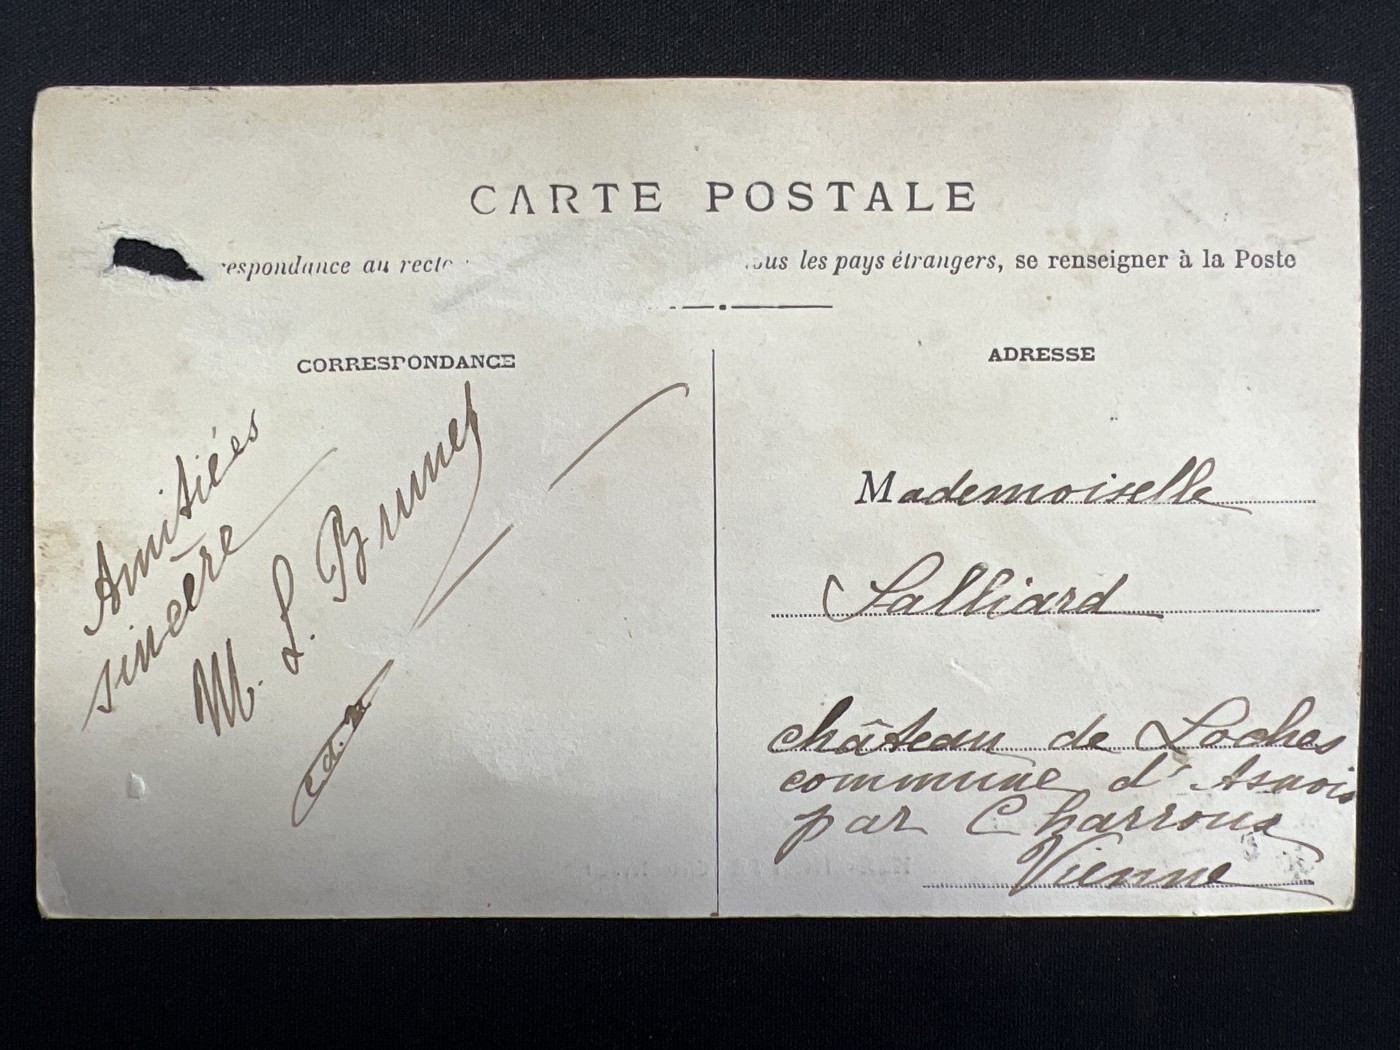 CARTE POSTALE
respondance au recto ous les pays étrangers, se renseigner à la Poste
CORRESPONDANCE
ADRESSE
Amitiées
sincère
M. L. Brunet
Mademoiselle
Salliard
château de Loches
commune d'Asnois
par Charroux
Vienne